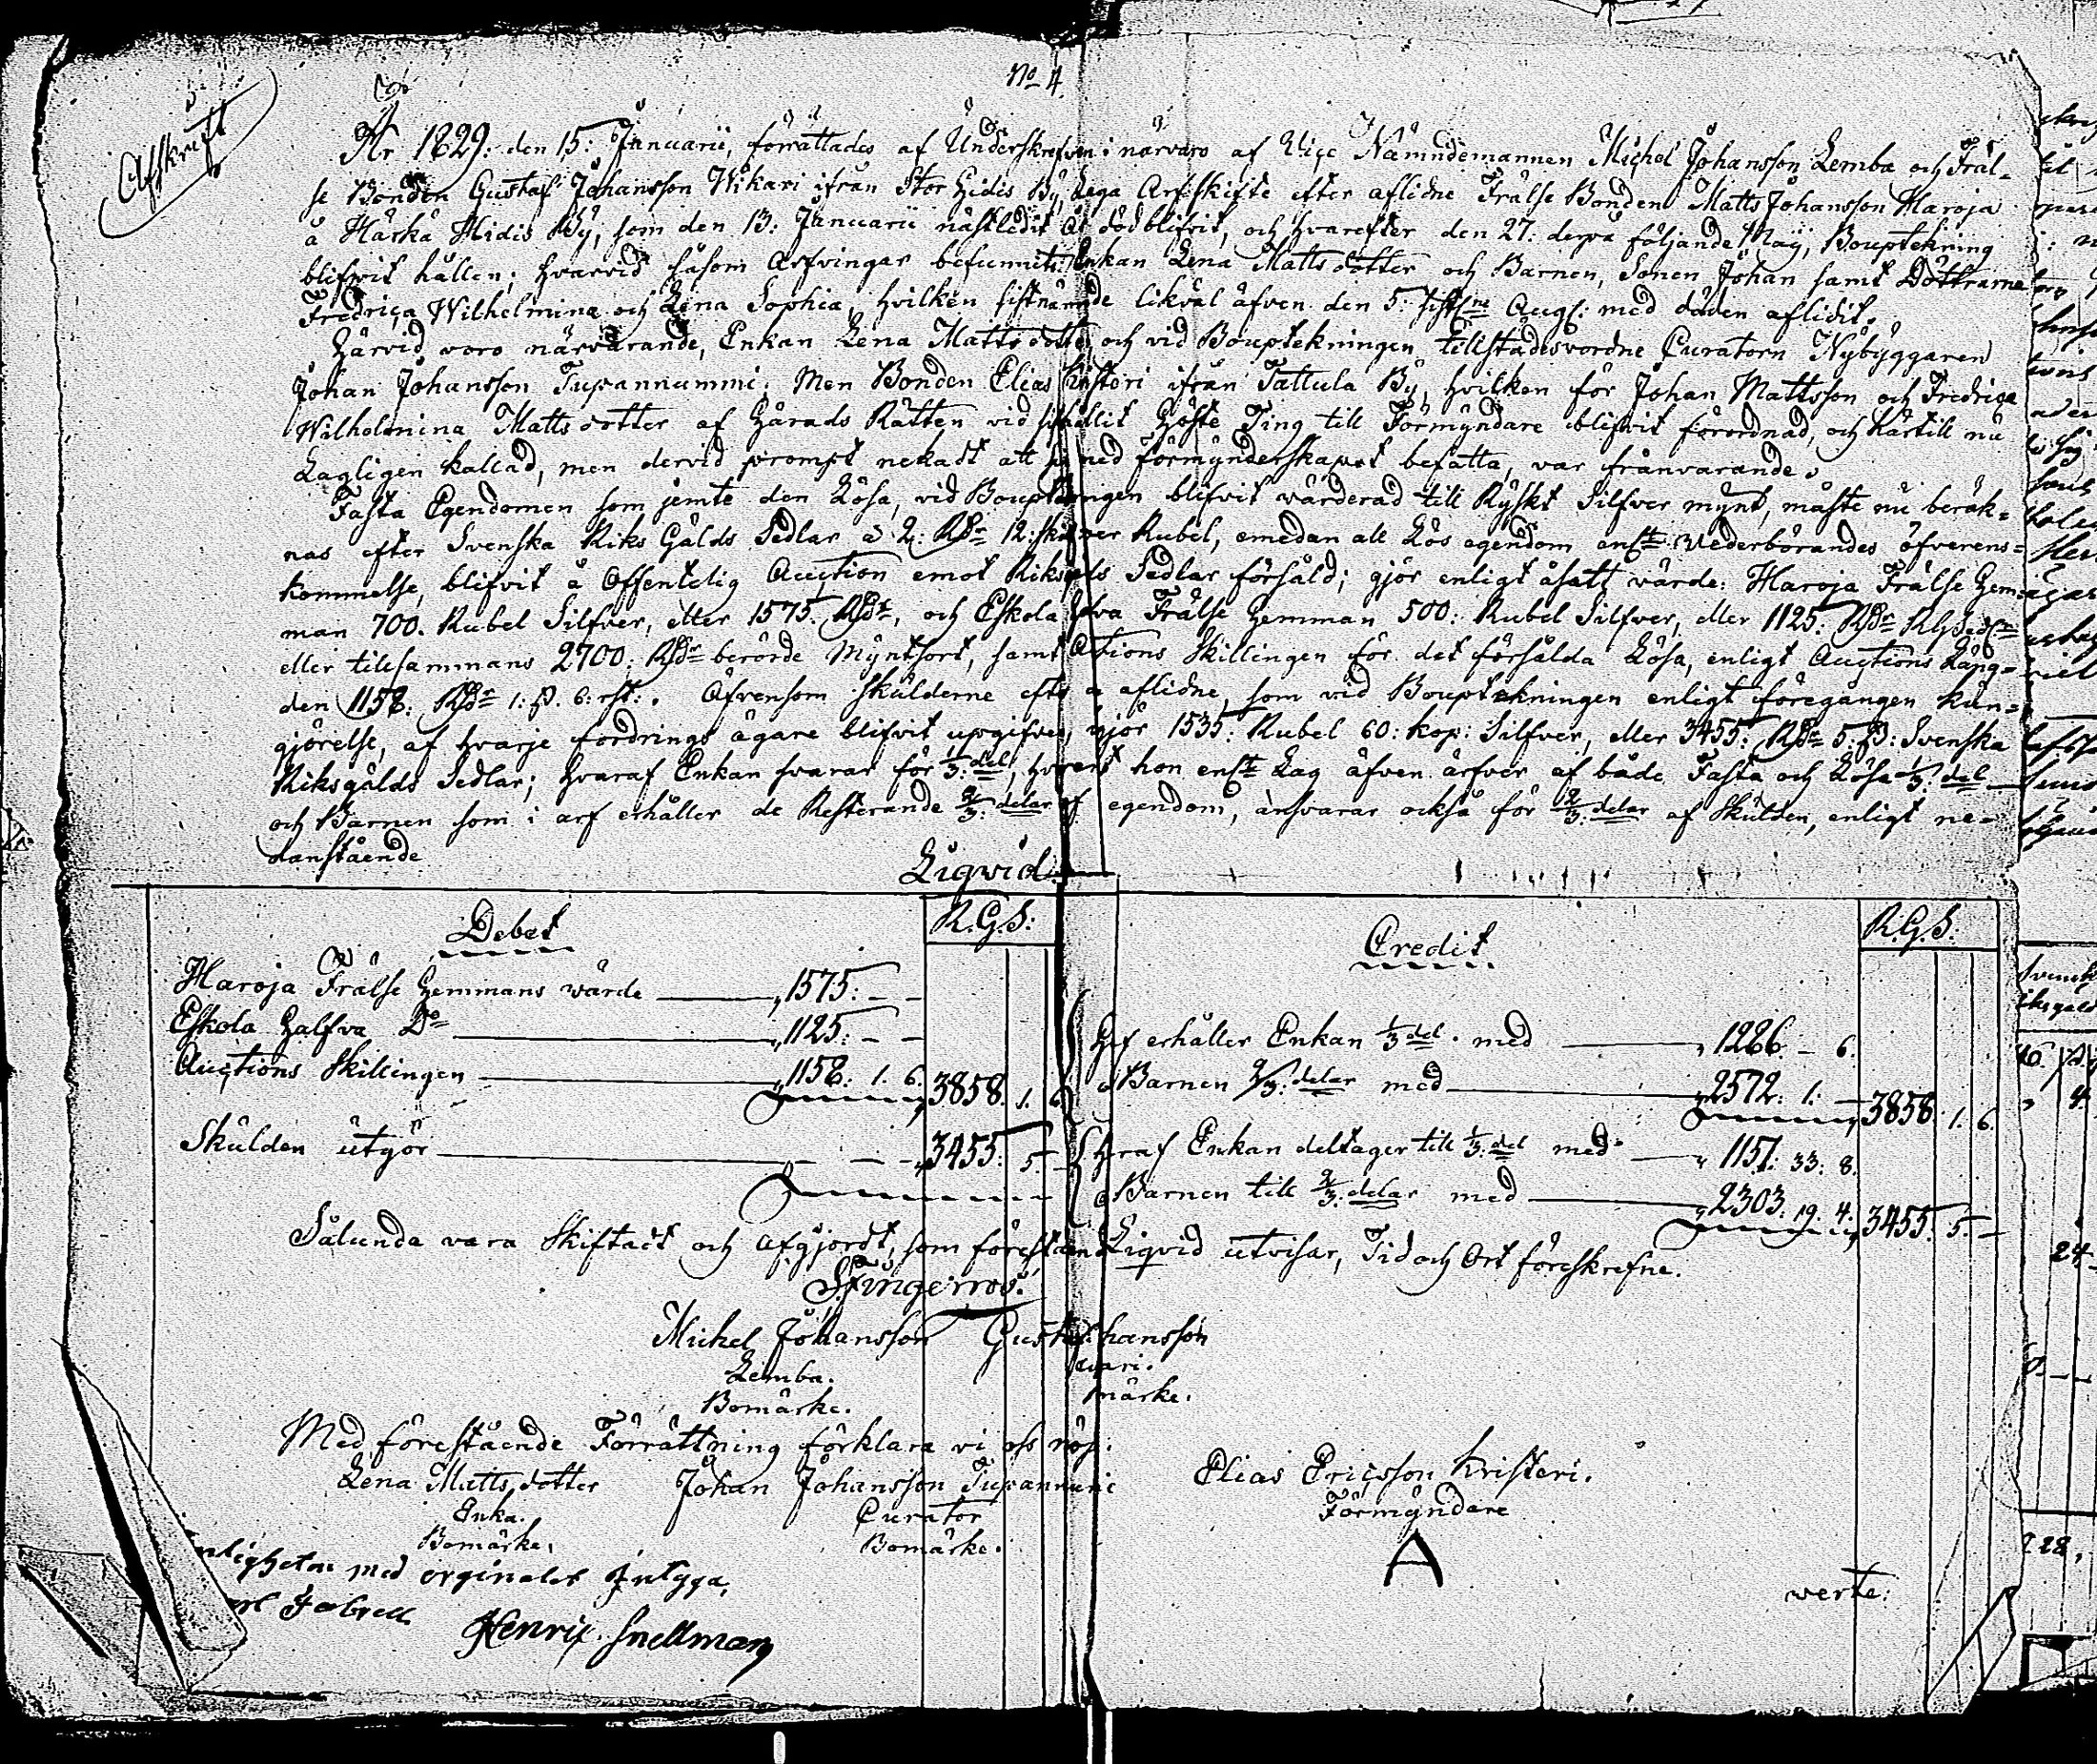 No 4.
Afskrift
År 1829. den 15: Januarii, förrättades af Underskrefven i närvaro af Vice Nämndemannen Michel Johansson Lemba och Fräl-
se Bonden Gustaf Johansson Wikari ifrån Stor Hidis By, Laga Arfskifte efter aflidne Frälse Bonden Matts Johansson Haroja
å Härkä Hidis By, som den 13: Januarii nästledit År död blifvit, och hvarefter den 27: derpå följande Maji, Bouptekning
blifvit hållen; hvarvid såsom Arfvingar befunnits: Enkan Lena Matts dotter och Barnen, Sonen Johan samt Döttrarne
Fredrica Wilhelmina och Lena Sophia, hvilken sistnämnde likväl äfven den 5: sistl:ne Aug: med döden aflidit.
Härvid voro närvarande, Enkan Lena Matts dotter och vid Bouptekningen tillstädesvordne Curatorn Nybyggaren
Johan Johansson Tupannummi; Men Bonden Elias Kristeri ifrån Tattula By, hvilken för Johan Mattsson och Fredrica
Wilhelmina Matts dotter af Härads Rätten vid sisthållit Höste Ting till Förmyndare blifvit förordnad, och härtill nu
Lagligen kallad, men dervid prompt nekadt att med förmynderskapet befatta, var frånvarande.
Fasta Egendomen som jemte den Lösa, vid Bouptekningen blifvit värderad till Ryskt Silfver mynt, måste nu beräk-
nas efter Svenska Riks Gälds Sedlar a 2: RDr 12: sk per Rubel, emedan all Lös egendom enl:t Vederbörandes öfverens-
kommelse, blifvit å Offentelig Auction emot Riksgälds Sedlar försåld; gjör enligt åsatt värde: Haroja Frälse Hem-
man 700. Rubel Silfver, eller 1575. RDr, och Eskola halfva Frälse Hemman 500: Rubel Silfver, eller 1125: RDr RGSedl:r
eller tillsammans 2700: RDr berörde Myntsort, samt Actions Skillingen för det försålda Lösa, enligt Auctions Läng-
den 1158: RDr 1: ß. 6: rst:. Äfvensom skulderne efter aflidne, som vid Bouptekningen enligt föregången kun-
gjörelse, af hvarje fordrings ägare blifvit upgifven, gjör 1535: Rubel 60: kop: Silfver, eller 3455: RDr 5: ß: Svenska
Riksgälds Sedlar; hvaraf Enkan svarar för 1/3: del, hon enl:t Lag äfven ärfver af både Fasta och Lösa 1/3: del
och Barnen som i arf erhåller de Resterande 2/3: delar af egendom, ansvarar också för 2/3: delar af Skulden, enligt ne-
danstående
Liqvid.
Debet R.G.S:
Haroja Frälse Hemmans wärde 1575: – –
Eskola Halfva Do 1125: – –
Auctions Skillingen 1158: 1. 6. 3858. 1. 6.
Skulden utgör 3455. 5. –
Credit R.G.S:
Haf erhåller Enkan 1/3 del. med 1286. – 6.
Barnen 2/3: delar med 2572. 1: – 3858. 1. 6.
Haraf Enkan deltager till 1/3: del med 1151: 33: 8.
Barnen till 2/3: delar med 2303. 19. 4. 3455. 5. –
Sålunda vara Skiftadt och Afgjordt, som förestående Liqvid utvisar, Tid och Ort föreskrefne.
Stingerroos.
Michel Johansson Gustaf Johansson
Lemba.
Bomärke. märke.
Med förestående Förrättning förklara vi oss nöj.
Lena Matts dotter Johan Johansson Tupannummi
Enka. Curator
Bomärke. Bomärke.
Elias Ericsson Kristeri.
Förmyndare
A
med orginalet Intyga,
Henric Snellman
werte: